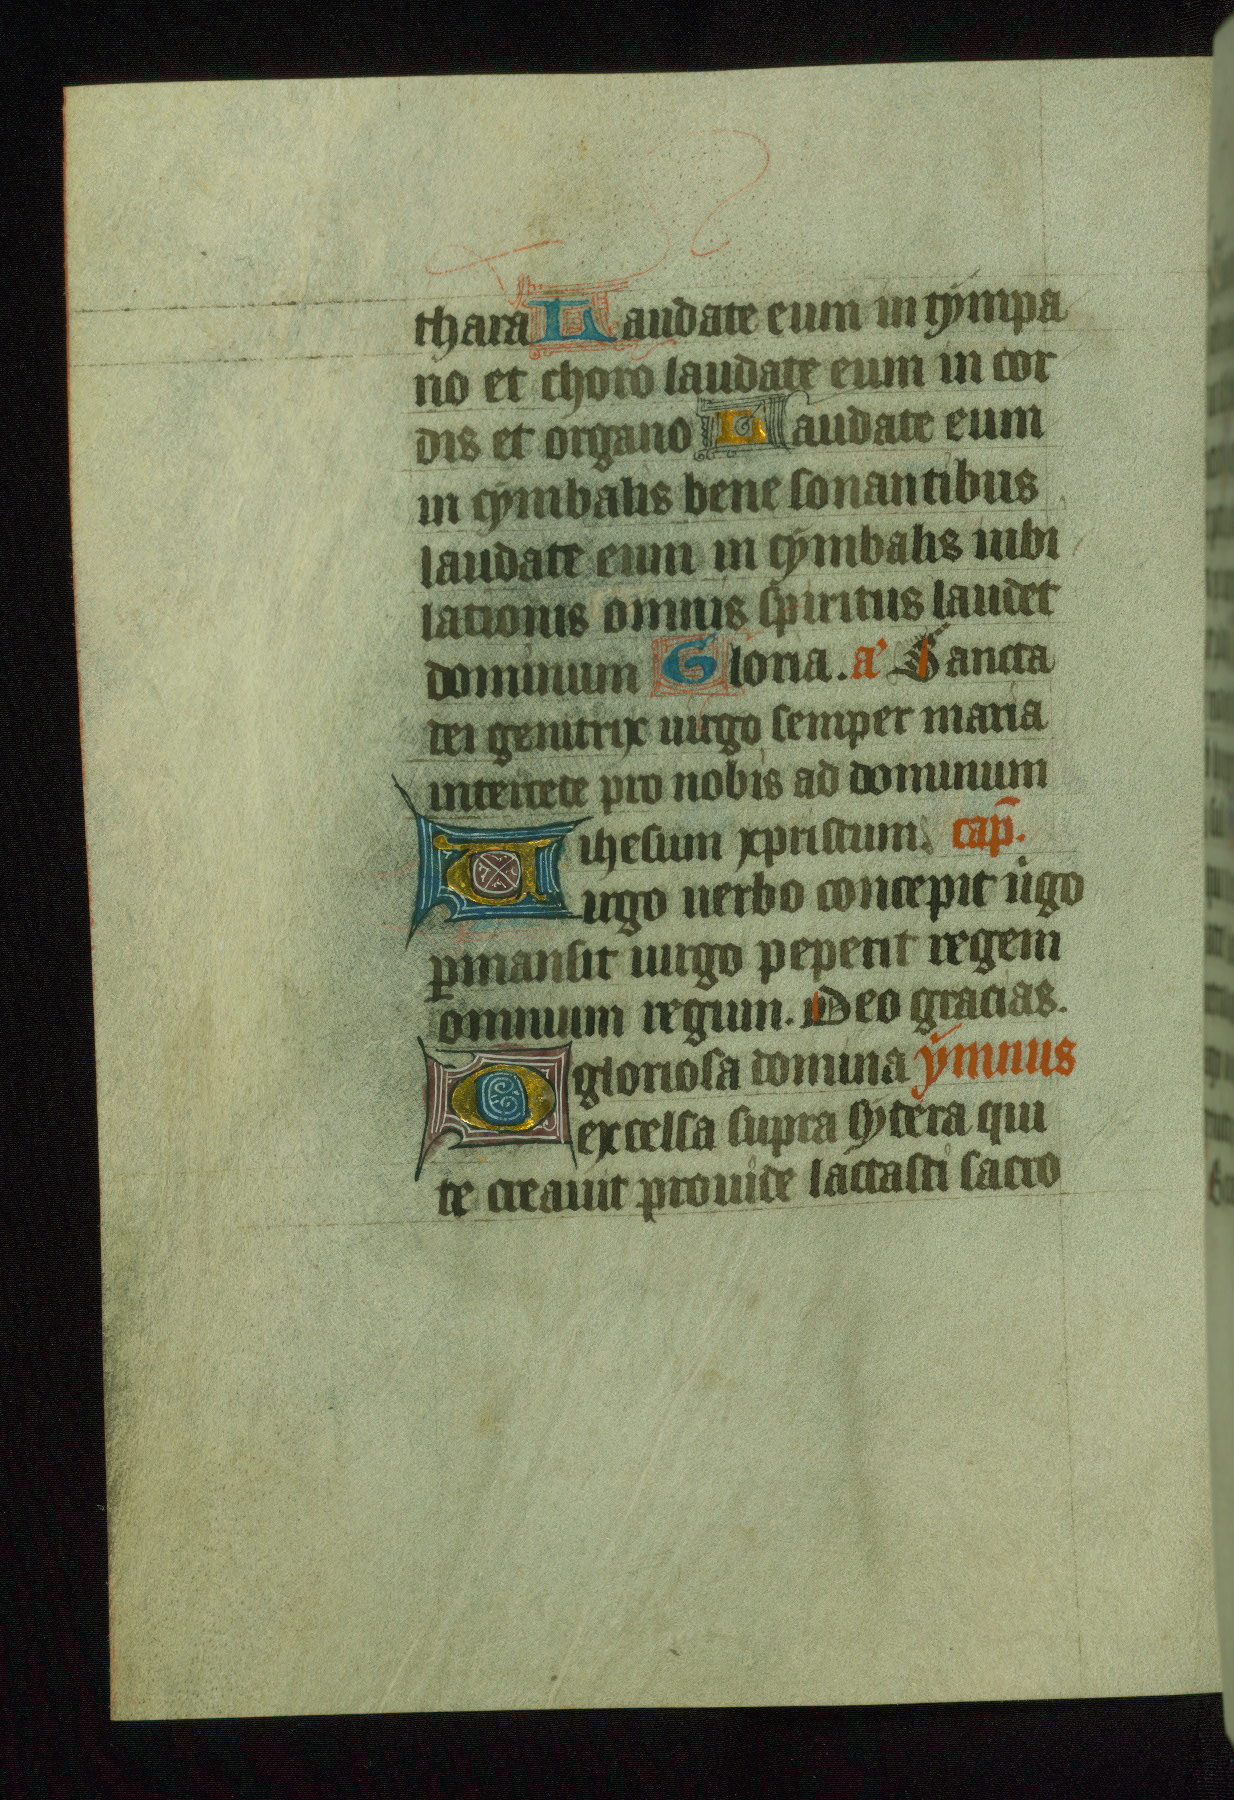 thara Laudate eum in tÿmpa
no et choro laudate eum in cor
dis et organo Laudate eum
in cÿmbalis bene sonantibus
laudate eum in cÿmbalis iubi
lationis omnis spiritus laudet
dominum Gloria. a' Sancta
dei genitrix uirgo semper maria
intercede pro nobis ad dominum
ihesum xpristum. cap̄.
Uirgo uerbo concepit uͥgo
ꝑmansit uirgo peperit regem
omnium regium. Deo gracias.
O gloriosa domina ÿmnus
excelsa supra sytera qui
te creauit prouide lactasti sacro